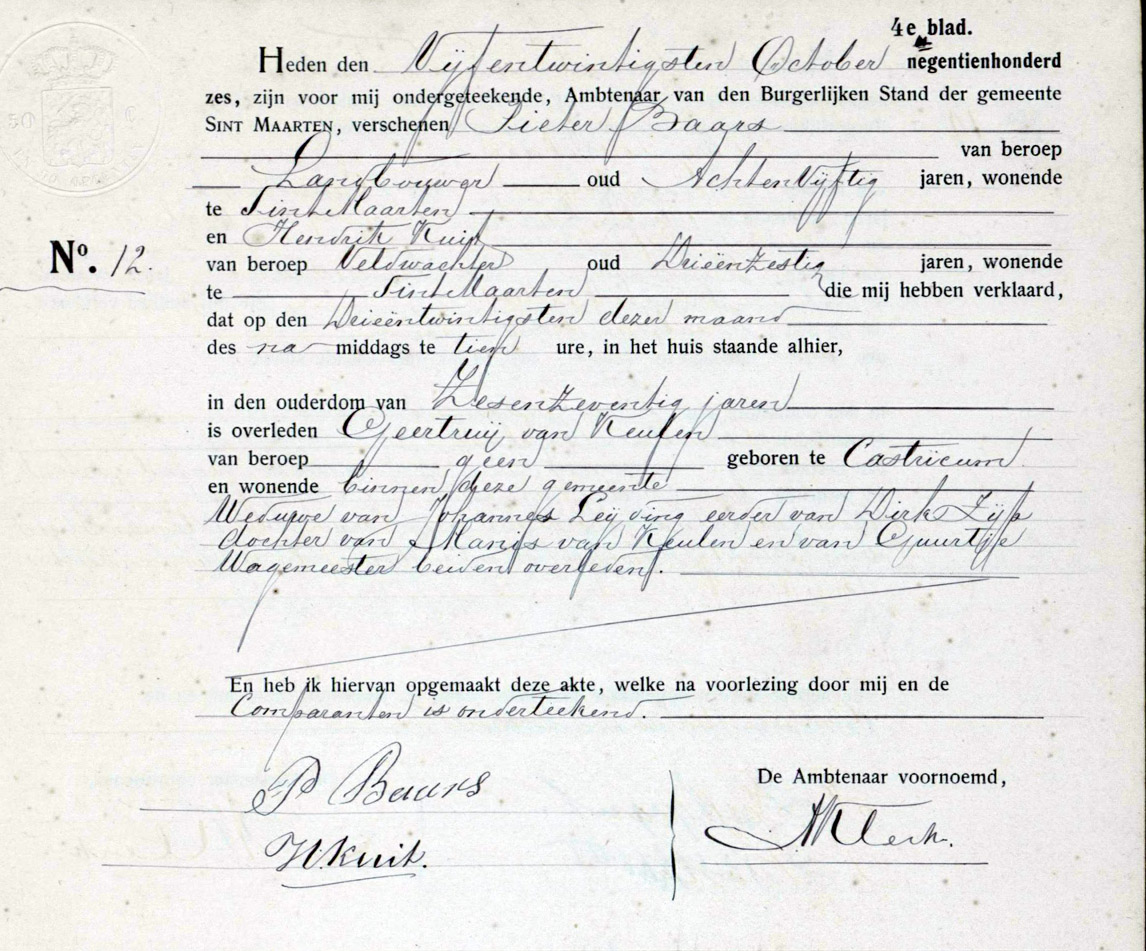 4e blad.
Heden den Vijfentwintigsten October negentienhonderd
zes, zijn voor mij ondergeteekende, Ambtenaar van den Burgerlijken Stand der gemeente
SINT MAARTEN, verschenen Pieter Baars
van beroep
Landbouwer oud Achtenvijftig jaren, wonende
te Sint Maarten
en Hendrik Kuit
No. 12.
van beroep Veldwachter oud Drieënzestig jaren, wonende
te Sint Maarten die mij hebben verklaard,
dat op den Drieëntwintigsten dezer maand
des na middags te tien ure, in het huis staande alhier,
in den ouderdom van Zesenzeventig jaren
is overleden Geertruij van Keulen
van beroep geen geboren te Castricum
en wonende binnen deze gemeente
Weduwe van Johannes Leijding eerder van Dirk Zijp
dochter van Marijs van Keulen en van Guurtje
Wagemeester beiden overleden.
En heb ik hiervan opgemaakt deze akte, welke na voorlezing door mij en de
Comparanten is onderteekend.
P Baars
De Ambtenaar voornoemd,
H. Kuit.